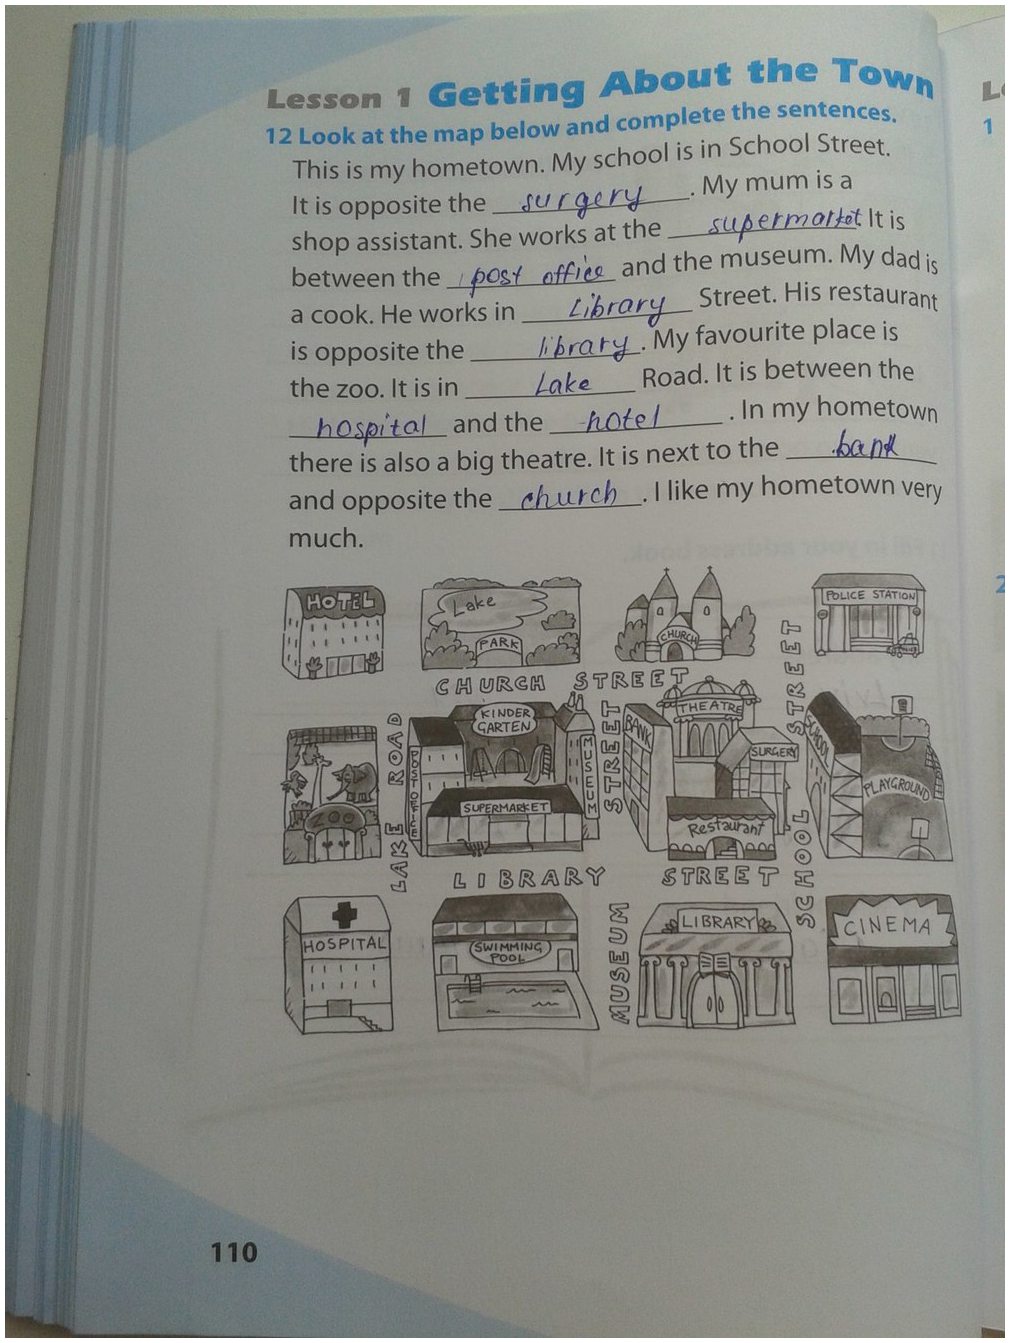 Lesson 1 Getting About the Town
12 Look at the map below and complete the sentences.
This is my hometown. My school is in School Street.
It is opposite the surgery. My mum is a
shop assistant. She works at the supermarket. It is
between the post office and the museum. My dad is
a cook. He works in Library Street. His restaurant
is opposite the library. My favourite place is
the zoo. It is in Lake Road. It is between the
hospital and the hotel. In my hometown
there is also a big theatre. It is next to the bank
and opposite the church. I like my hometown very
much.
HOTEL
Lake
PARK
CHURCH
POLICE STATION
CHURCH STREET
ZOO
LAKE ROAD
POST OFFICE
KINDER
GARTEN
MUSEUM
SUPERMARKET
STREET
BANK
THEATRE
SURGERY
Restaurant
STREET
SCHOOL
SCHOOL
PLAYGROUND
LIBRARY STREET
HOSPITAL
SWIMMING
POOL
MUSEUM
LIBRARY
CINEMA
110
1
2